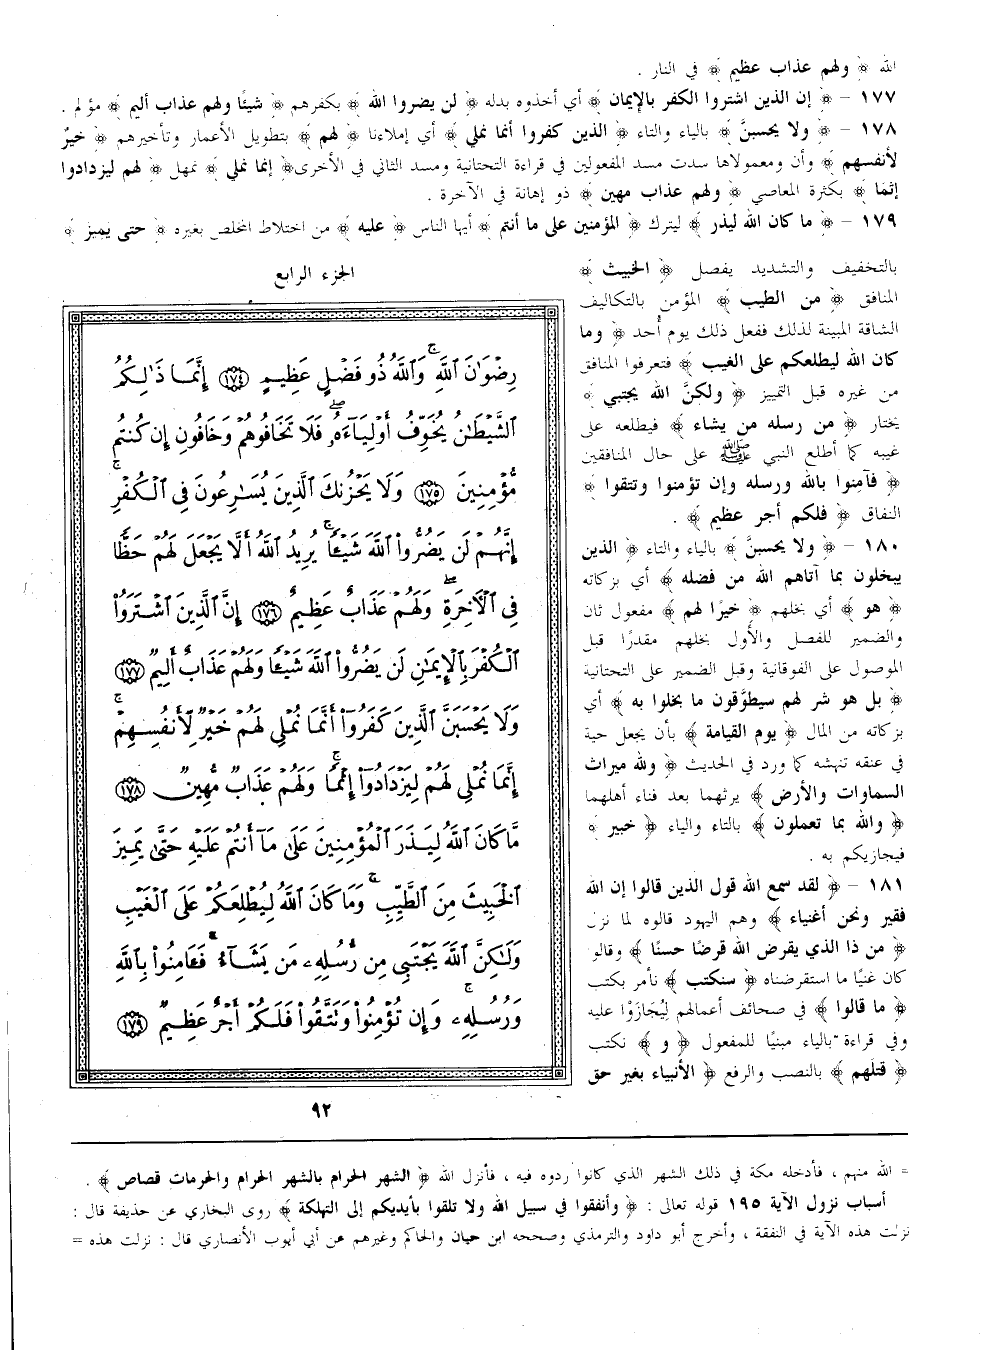 الله ﴿ ولهم عذاب عظيم ﴾ في النار .
١٧٧ - ﴿ إن الذين اشتروا الكفر بالإيمان ﴾ أي أخذوه بدله ﴿ لن يضروا الله ﴾ بكفرهم ﴿ شيئًا ولهم عذاب أليم ﴾ مؤلم .
١٧٨ - ﴿ ولا يحسبنَّ ﴾ بالياء والتاء ﴿ الذين كفروا أنما نملي ﴾ أي إملاءنا ﴿ لهم ﴾ بتطويل الأعمار وتأخيرهم ﴿ خيرٌ
لأنفسهم ﴾ وأن ومعمولاها سدت مسد المفعولين في قراءة التحتانية ومسد الثاني في الأخرى ﴿ إنما نملي ﴾ نمهل ﴿ لهم ليزدادوا
إثمًا ﴾ بكثرة المعاصي ﴿ ولهم عذاب مهين ﴾ ذو إهانة في الآخرة .
١٧٩ - ﴿ ما كان الله ليذر ﴾ ليترك ﴿ المؤمنين على ما أنتم ﴾ أيها الناس ﴿ عليه ﴾ من اختلاط المخلص بغيره ﴿ حتى يميز ﴾
بالتخفيف والتشديد يفصل ﴿ الخبيث ﴾
المنافق ﴿ من الطيب ﴾ المؤمن بالتكاليف
الشاقة المبينة لذلك ففعل ذلك يوم أُحد ﴿ وما
كان الله ليطلعكم على الغيب ﴾ فتعرفوا المنافق
من غيره قبل التمييز ﴿ ولكنَّ الله يجتبي ﴾
يختار ﴿ من رسله من يشاء ﴾ فيطلعه على
غيبه كما أطلع النبي ﷺ على حال المنافقين
﴿ فآمِنوا بالله ورسله وإن تؤمنوا وتتقوا ﴾
النفاق ﴿ فلكم أجر عظيم ﴾ .
١٨٠ - ﴿ ولا يحسبنَّ ﴾ بالياء والتاء ﴿ الذين
يبخلون بما آتاهم الله من فضله ﴾ أي بزكاته
﴿ هو ﴾ أي بخلهم ﴿ خيرًا لهم ﴾ مفعول ثان
والضمير للفصل والأول بخلهم مقدرًا قبل
الموصول على الفوقانية وقبل الضمير على التحتانية
﴿ بل هو شر لهم سيطوَّقون ما بخلوا به ﴾ أي
بزكاته من المال ﴿ يوم القيامة ﴾ بأن يجعل حية
في عنقه تنهشه كما ورد في الحديث ﴿ ولله ميراث
السماوات والأرض ﴾ يرثهما بعد فناء أهلهما
﴿ والله بما تعملون ﴾ بالتاء والياء ﴿ خبير ﴾
فيجازيكم به .
١٨١ - ﴿ لقد سمع الله قول الذين قالوا إن الله
فقير ونحن أغنياء ﴾ وهم اليهود قالوه لما نزل
﴿ من ذا الذي يقرض الله قرضًا حسنًا ﴾ وقالو
كان غنيًا ما استقرضناه ﴿ سنكتب ﴾ نأمر بكتب
﴿ ما قالوا ﴾ في صحائف أعمالهم لِيُجَازَوْا عليه
وفي قراءة بالياء مبنيًا للمفعول ﴿ و ﴾ نكتب
﴿ قتلَهم ﴾ بالنصب والرفع ﴿ الأنبياء بغير حق
الجزء الرابع
رِضْوَٰنَ ٱللَّهِ ۗ وَٱللَّهُ ذُو فَضْلٍ عَظِيمٍ ١٧٤ إِنَّمَا ذَٰلِكُمُ
ٱلشَّيْطَٰنُ يُخَوِّفُ أَوْلِيَآءَهُۥ ۖ فَلَا تَخَافُوهُمْ وَخَافُونِ إِن كُنتُم
مُّؤْمِنِينَ ١٧٥ وَلَا يَحْزُنكَ ٱلَّذِينَ يُسَٰرِعُونَ فِى ٱلْكُفْرِ ۚ
إِنَّهُمْ لَن يَضُرُّوا۟ ٱللَّهَ شَيْـًٔا ۗ يُرِيدُ ٱللَّهُ أَلَّا يَجْعَلَ لَهُمْ حَظًّا
فِى ٱلْـَٔاخِرَةِ ۖ وَلَهُمْ عَذَابٌ عَظِيمٌ ١٧٦ إِنَّ ٱلَّذِينَ ٱشْتَرَوُا۟
ٱلْكُفْرَ بِٱلْإِيمَٰنِ لَن يَضُرُّوا۟ ٱللَّهَ شَيْـًٔا وَلَهُمْ عَذَابٌ أَلِيمٌ ١٧٧
وَلَا يَحْسَبَنَّ ٱلَّذِينَ كَفَرُوٓا۟ أَنَّمَا نُمْلِى لَهُمْ خَيْرٌ لِّأَنفُسِهِمْ ۚ
إِنَّمَا نُمْلِى لَهُمْ لِيَزْدَادُوٓا۟ إِثْمًا ۚ وَلَهُمْ عَذَابٌ مُّهِينٌ ١٧٨
مَّا كَانَ ٱللَّهُ لِيَذَرَ ٱلْمُؤْمِنِينَ عَلَىٰ مَآ أَنتُمْ عَلَيْهِ حَتَّىٰ يَمِيزَ
ٱلْخَبِيثَ مِنَ ٱلطَّيِّبِ ۗ وَمَا كَانَ ٱللَّهُ لِيُطْلِعَكُمْ عَلَى ٱلْغَيْبِ
وَلَٰكِنَّ ٱللَّهَ يَجْتَبِى مِن رُّسُلِهِۦ مَن يَشَآءُ ۖ فَـَٔامِنُوا۟ بِٱللَّهِ
وَرُسُلِهِۦ ۚ وَإِن تُؤْمِنُوا۟ وَتَتَّقُوا۟ فَلَكُمْ أَجْرٌ عَظِيمٌ ١٧٩
٩٢
= الله منهم ، فأدخله مكة في ذلك الشهر الذي كانوا ردوه فيه ، فأنزل الله ﴿ الشهر الحرام بالشهر الحرام والحرمات قصاص ﴾ .
أسباب نزول الآية ١٩٥ قوله تعالى : ﴿ وأنفقوا في سبيل الله ولا تلقوا بأيديكم إلى التهلكة ﴾ روى البخاري عن حذيفة قال :
نزلت هذه الآية في النفقة ، وأخرج أبو داود والترمذي وصححه ابن حبان والحاكم وغيرهم عن أبي أيوب الأنصاري قال : نزلت هذه =